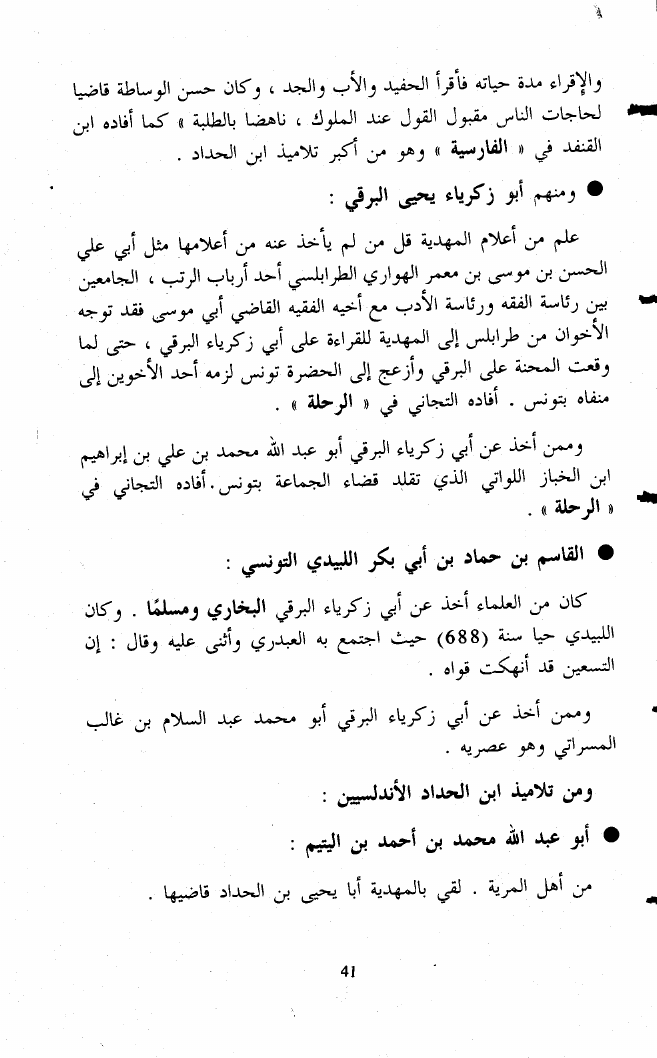 والإقراء مدة حياته فأقرأ الحفيد والأب والجد ، وكان حسن الوساطة قاضيا
لحاجات الناس مقبول القول عند الملوك ، ناهضا بالطلبة » كما أفاده ابن
القنفد في « الفارسية » وهو من أكبر تلاميذ ابن الحداد .
● ومنهم أبو زكرياء يحيى البرقي :
علم من أعلام المهدية قل من لم يأخذ عنه من أعلامها مثل أبي علي
الحسن بن موسى بن معمر الهواري الطرابلسي أحد أرباب الرتب ، الجامعين
بين رئاسة الفقه ورئاسة الأدب مع أخيه الفقيه القاضي أبي موسى فقد توجه
الأخوان من طرابلس إلى المهدية للقراءة على أبي زكرياء البرقي ، حتى لما
وقعت المحنة على البرقي وأزعج إلى الحضرة تونس لزمه أحد الأخوين إلى
منفاه بتونس . أفاده التجاني في « الرحلة » .
وممن أخذ عن أبي زكرياء البرقي أبو عبد الله محمد بن علي بن إبراهيم
ابن الخباز اللواتي الذي تقلد قضاء الجماعة بتونس . أفاده التجاني في
« الرحلة » .
● القاسم بن حماد بن أبي بكر اللبيدي التونسي :
كان من العلماء أخذ عن أبي زكرياء البرقي البخاري ومسلمًا . وكان
اللبيدي حيا سنة (688) حيث اجتمع به العبدري وأثنى عليه وقال : إن
التسعين قد أنهكت قواه .
وممن أخذ عن أبي زكرياء البرقي أبو محمد عبد السلام بن غالب
المسراتي وهو عصريه .
ومن تلاميذ ابن الحداد الأندلسيين :
● أبو عبد الله محمد بن أحمد بن اليتيم :
من أهل المرية . لقي بالمهدية أبا يحيى بن الحداد قاضيها .
41